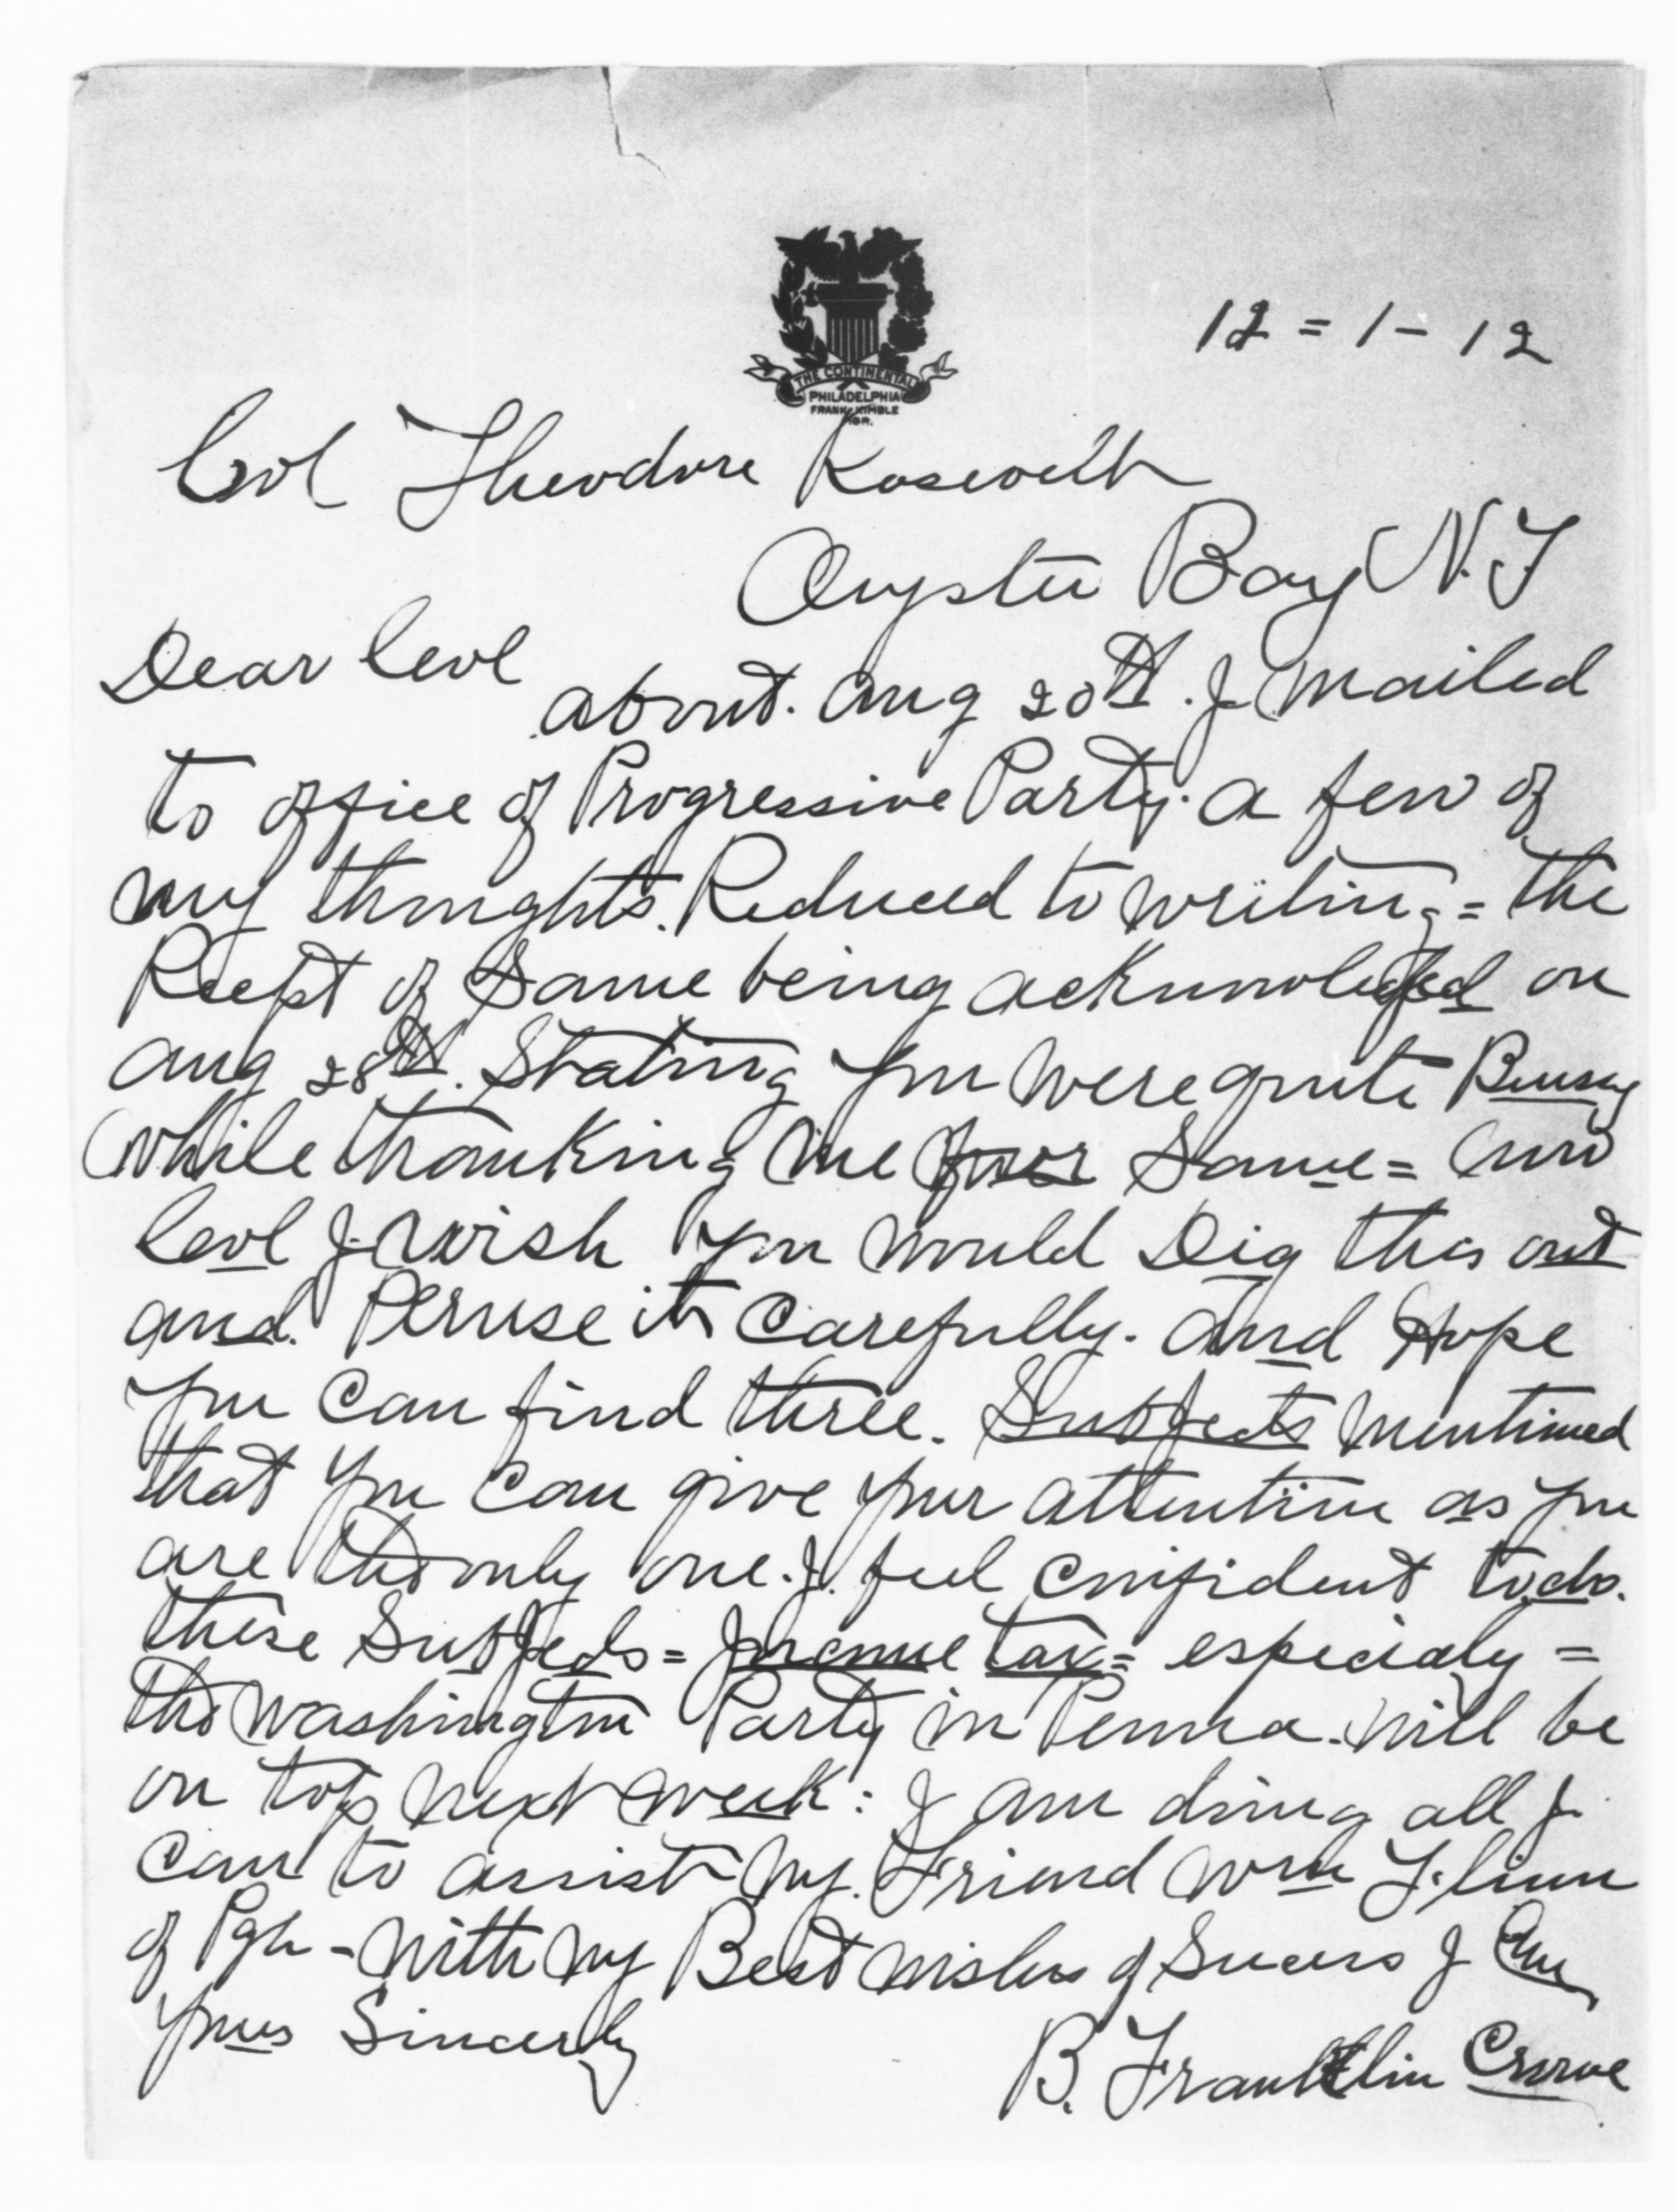 THE CONTINENTAL
PHILADELPHIA
FRANK KIMBLE
MGR.
12 = 1 - 12
Col Theodore Rosevelt
Oyster Bay N.Y
Dear Col
about. Aug 20th. I mailed
to office of Progressive Party. a few of
my thoughts. Reduced to writing = the
Reept of Same being acknowledged on
Aug 28th. Stating you were quite Buusy
while thanking me for Same = Now
Col I wish you would Dig this out
and. Peruse it Carefully. And Hope
you Can find three. Subjects mentioned
that you can give your attention as you
are the only one. I. feel confident to do.
these Subjects = Income tax = especialy =
the Washington Party in Penna. will be
on top next week : I am doing all I
can to assist my. Friend Wm Flinn
of Pgh - with my Best wishes of Sucess I Am
yours Sincerly
B. Franklin Crowe